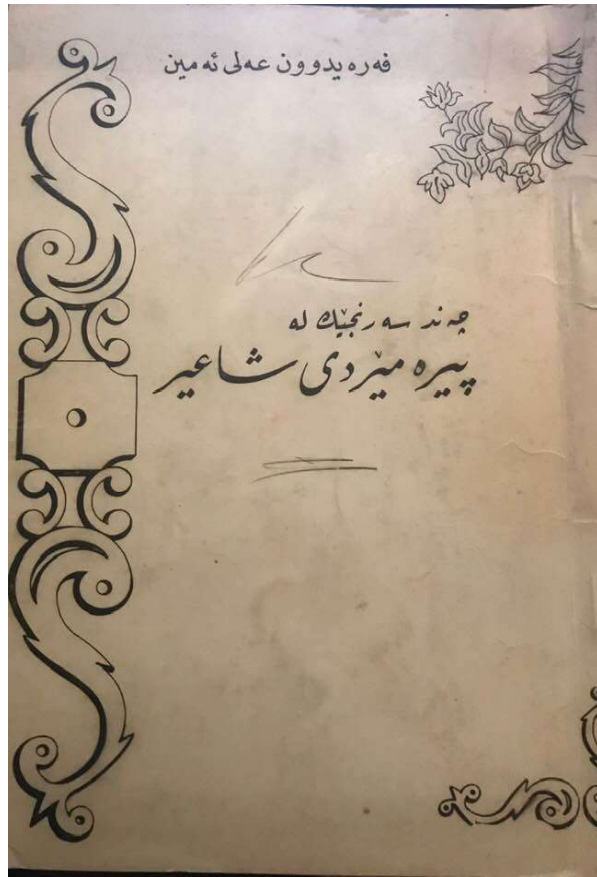 فەرەیدوون عەلی ئەمین
چەند سەرنجێك لە
پیرەمێردی شاعیر